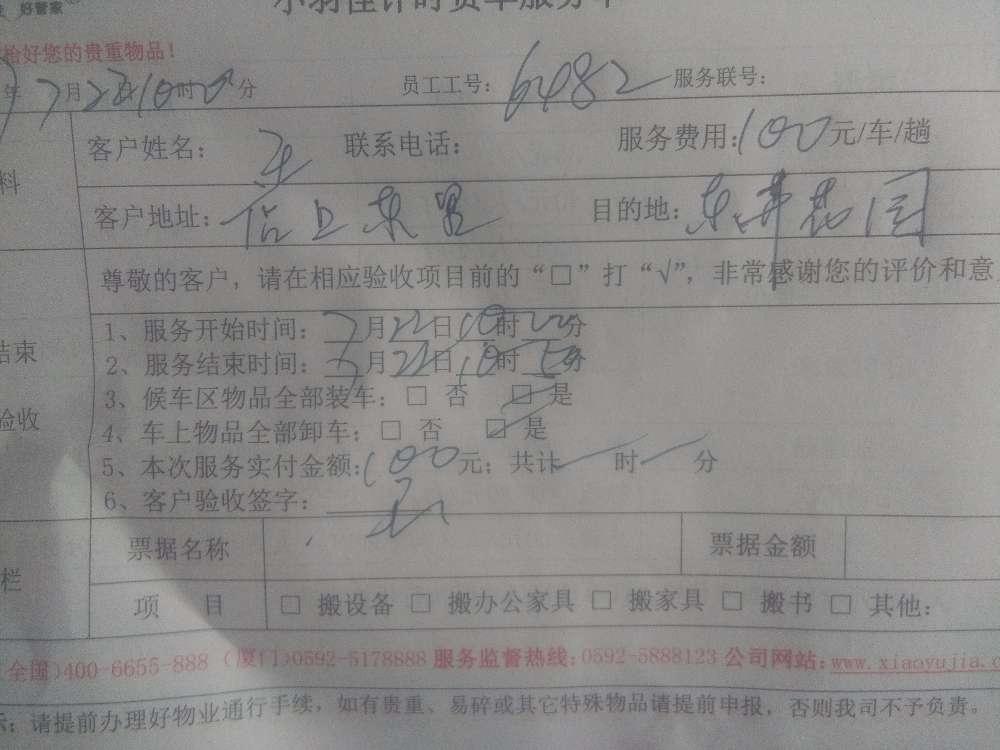 好管家
小羽佳计时货车服务单
检好您的贵重物品！
年7月22日10时00分 员工工号：6482 服务联号：
料 客户姓名： 联系电话： 服务费用：100元/车/趟
客户地址： 目的地：花园
尊敬的客户，请在相应验收项目前的“□”打“√”，非常感谢您的评价和意
结束
1、服务开始时间：7月22日10时分
2、服务结束时间：7月22日10时分
3、候车区物品全部装车：□ 否 ☑ 是
验收
4、车上物品全部卸车：□ 否 ☑ 是
5、本次服务实付金额：100元；共计 时 分
6、客户验收签字：
票据名称 票据金额
栏
项 目 □ 搬设备 □ 搬办公家具 □ 搬家具 □ 搬书 □ 其他：
全国)400-6655-888 (厦门)0592-5178888 服务监督热线：0592-5888123 公司网站：www.xiaoyujia.c
示：请提前办理好物业通行手续，如有贵重、易碎或其它特殊物品请提前申报，否则我司不予负责。